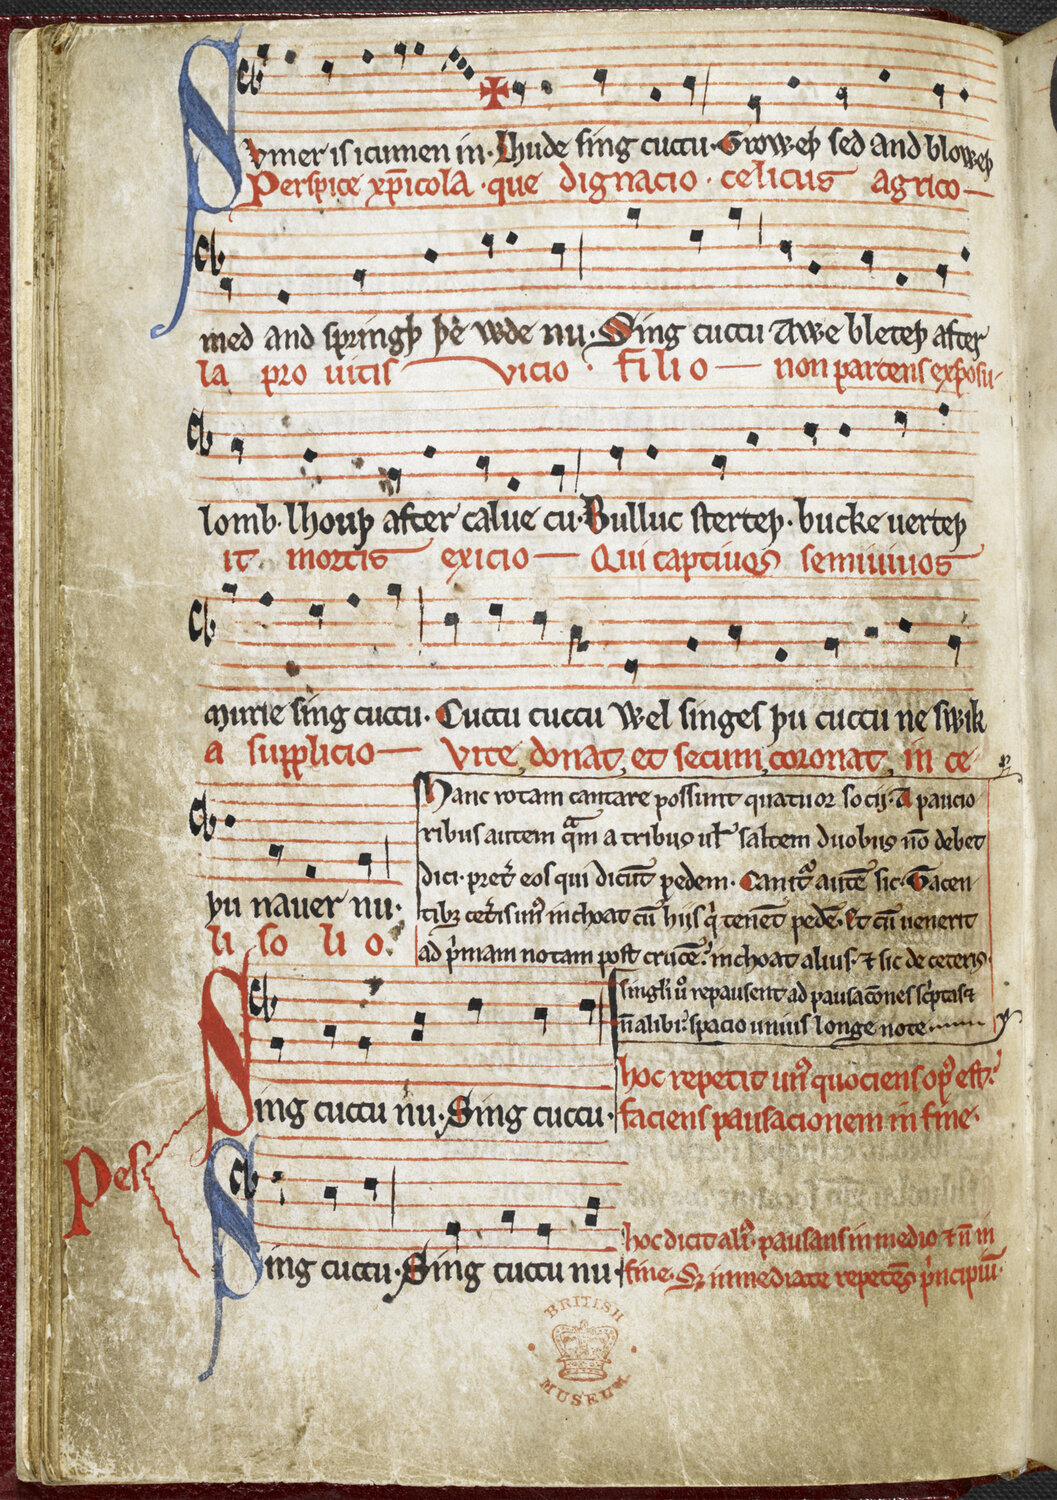 Svmer is icumen in. Lhude sing cuccu. Groweþ sed and bloweþ
Perspice xp̄icola. que dignacio. celicus agrico
med and springþ þe wde nu. Sing cuccu Awe bleteþ after
la pro uitis vicio. filio non parcens exposu
lomb. lhouþ after calue cu. Bulluc sterteþ. bucke uerteþ
it mortis exicio Qui captiuos semiuiuos
murie sing cuccu. Cuccu cuccu Wel singes þu cuccu ne swik
a supplicio Vite donat et secum coronat in ce
þu nauer nu.
li so li o.
Hanc rotam cantare possunt quatuor socij. A paucio
ribus autem qᵃm a tribus ul' saltem duobus nō debet
dici. pret̓ eos qui dicūt pedem. Canit̓ autē sic. Tacen
tibꝫ cet̓is un̓ inchoat cū hiis q̓ tenēt pedē. Et cū uenerit
ad p̓mam notam post crucē. inchoat alius. ⁊ sic de ceteris.
singl̓i u̓o repausent ad pausacōnes sc̓ptas ⁊
n̄ alibi. spacio unius longe note
Pes
Sing cuccu nu. Sing cuccu.
hoc repetit un̓ quociens op̓ est.
faciens pausacionem in fine.
Sing cuccu. Sing cuccu nu
hoc dicit ali̓. pausans in medio ⁊ n̄ in
fine. Sꝫ inmediate repetēs p̓ncipiū.
BRITISH
MUSEUM